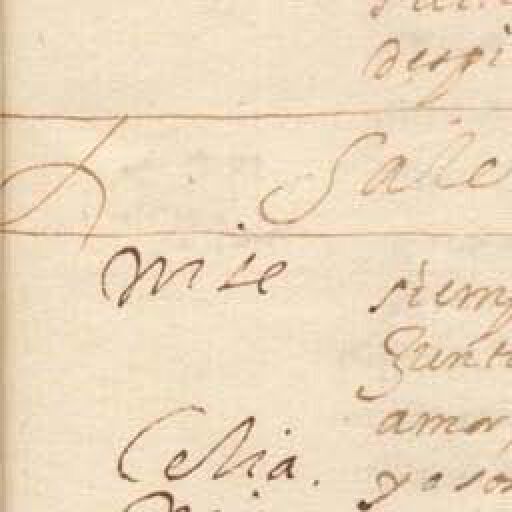 despi
Sale
Nise
siemp
Junt
amor,
Celia.
yo so